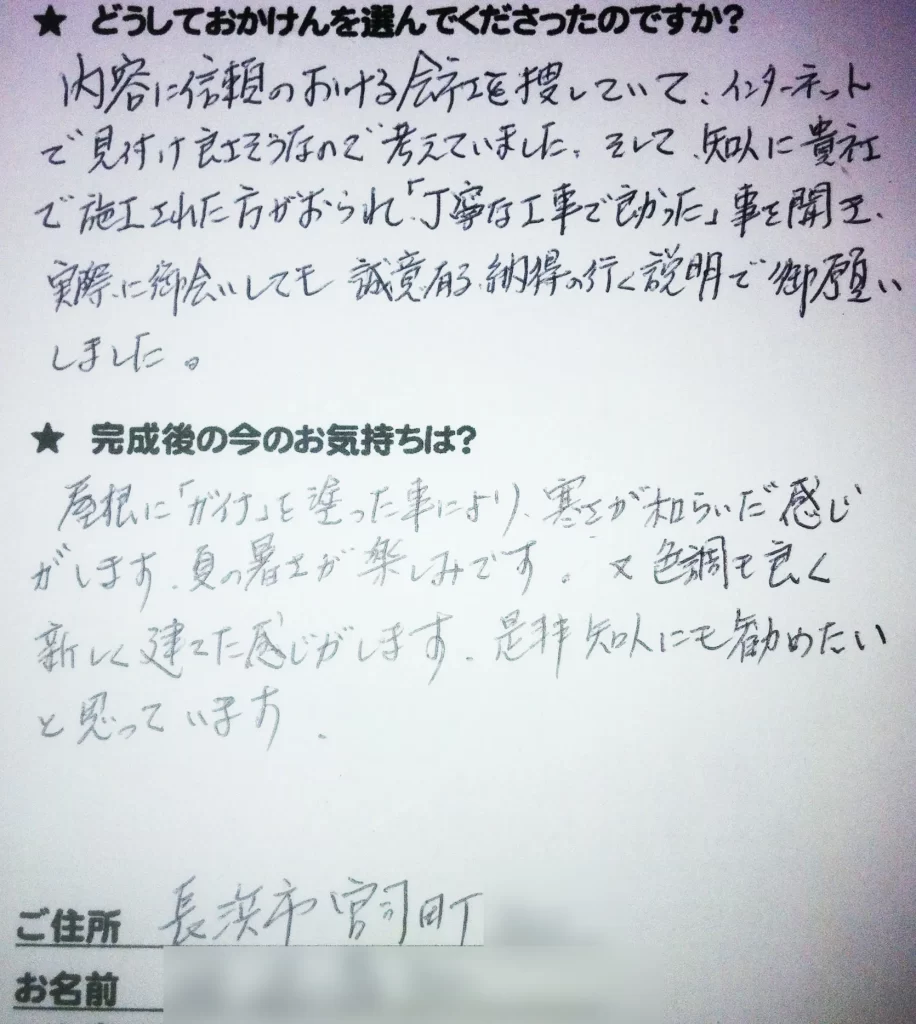 ★ どうしておかけんを選んでくださったのですか?
内容に信頼のおける会社を捜していて、インターネット
で見付け良さそうなので考えていました。そして、知人に貴社
で施工された方がおられ「丁寧な工事で良かった」事を聞き、
実際に御会いしても誠意有る納得の行く説明で御願い
しました。
★ 完成後の今のお気持ちは?
屋根に「ガイナ」を塗った事により、寒さが和らいだ感じ
がします。夏の暑さが楽しみです。又色調も良く
新しく建てた感じがします。是非知人にも勧めたい
と思っています。
ご住所 長浜市宮司町
お名前